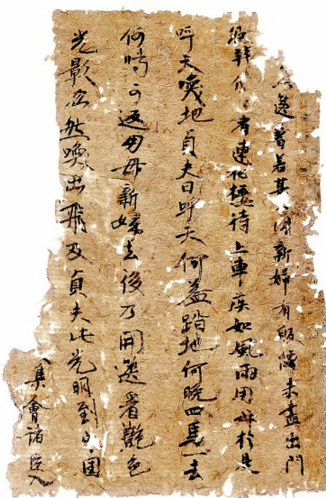 書若其開新婦有情未盡出門
韓有連花接待上車疾如風雨朋母於是
呼天喚地貞夫曰呼天何益踏地何晚四馬一去
何時可返朋母新婦去後乃開看艷色
光影忽然喚出飛及貞夫此光明到國
集會諸臣人